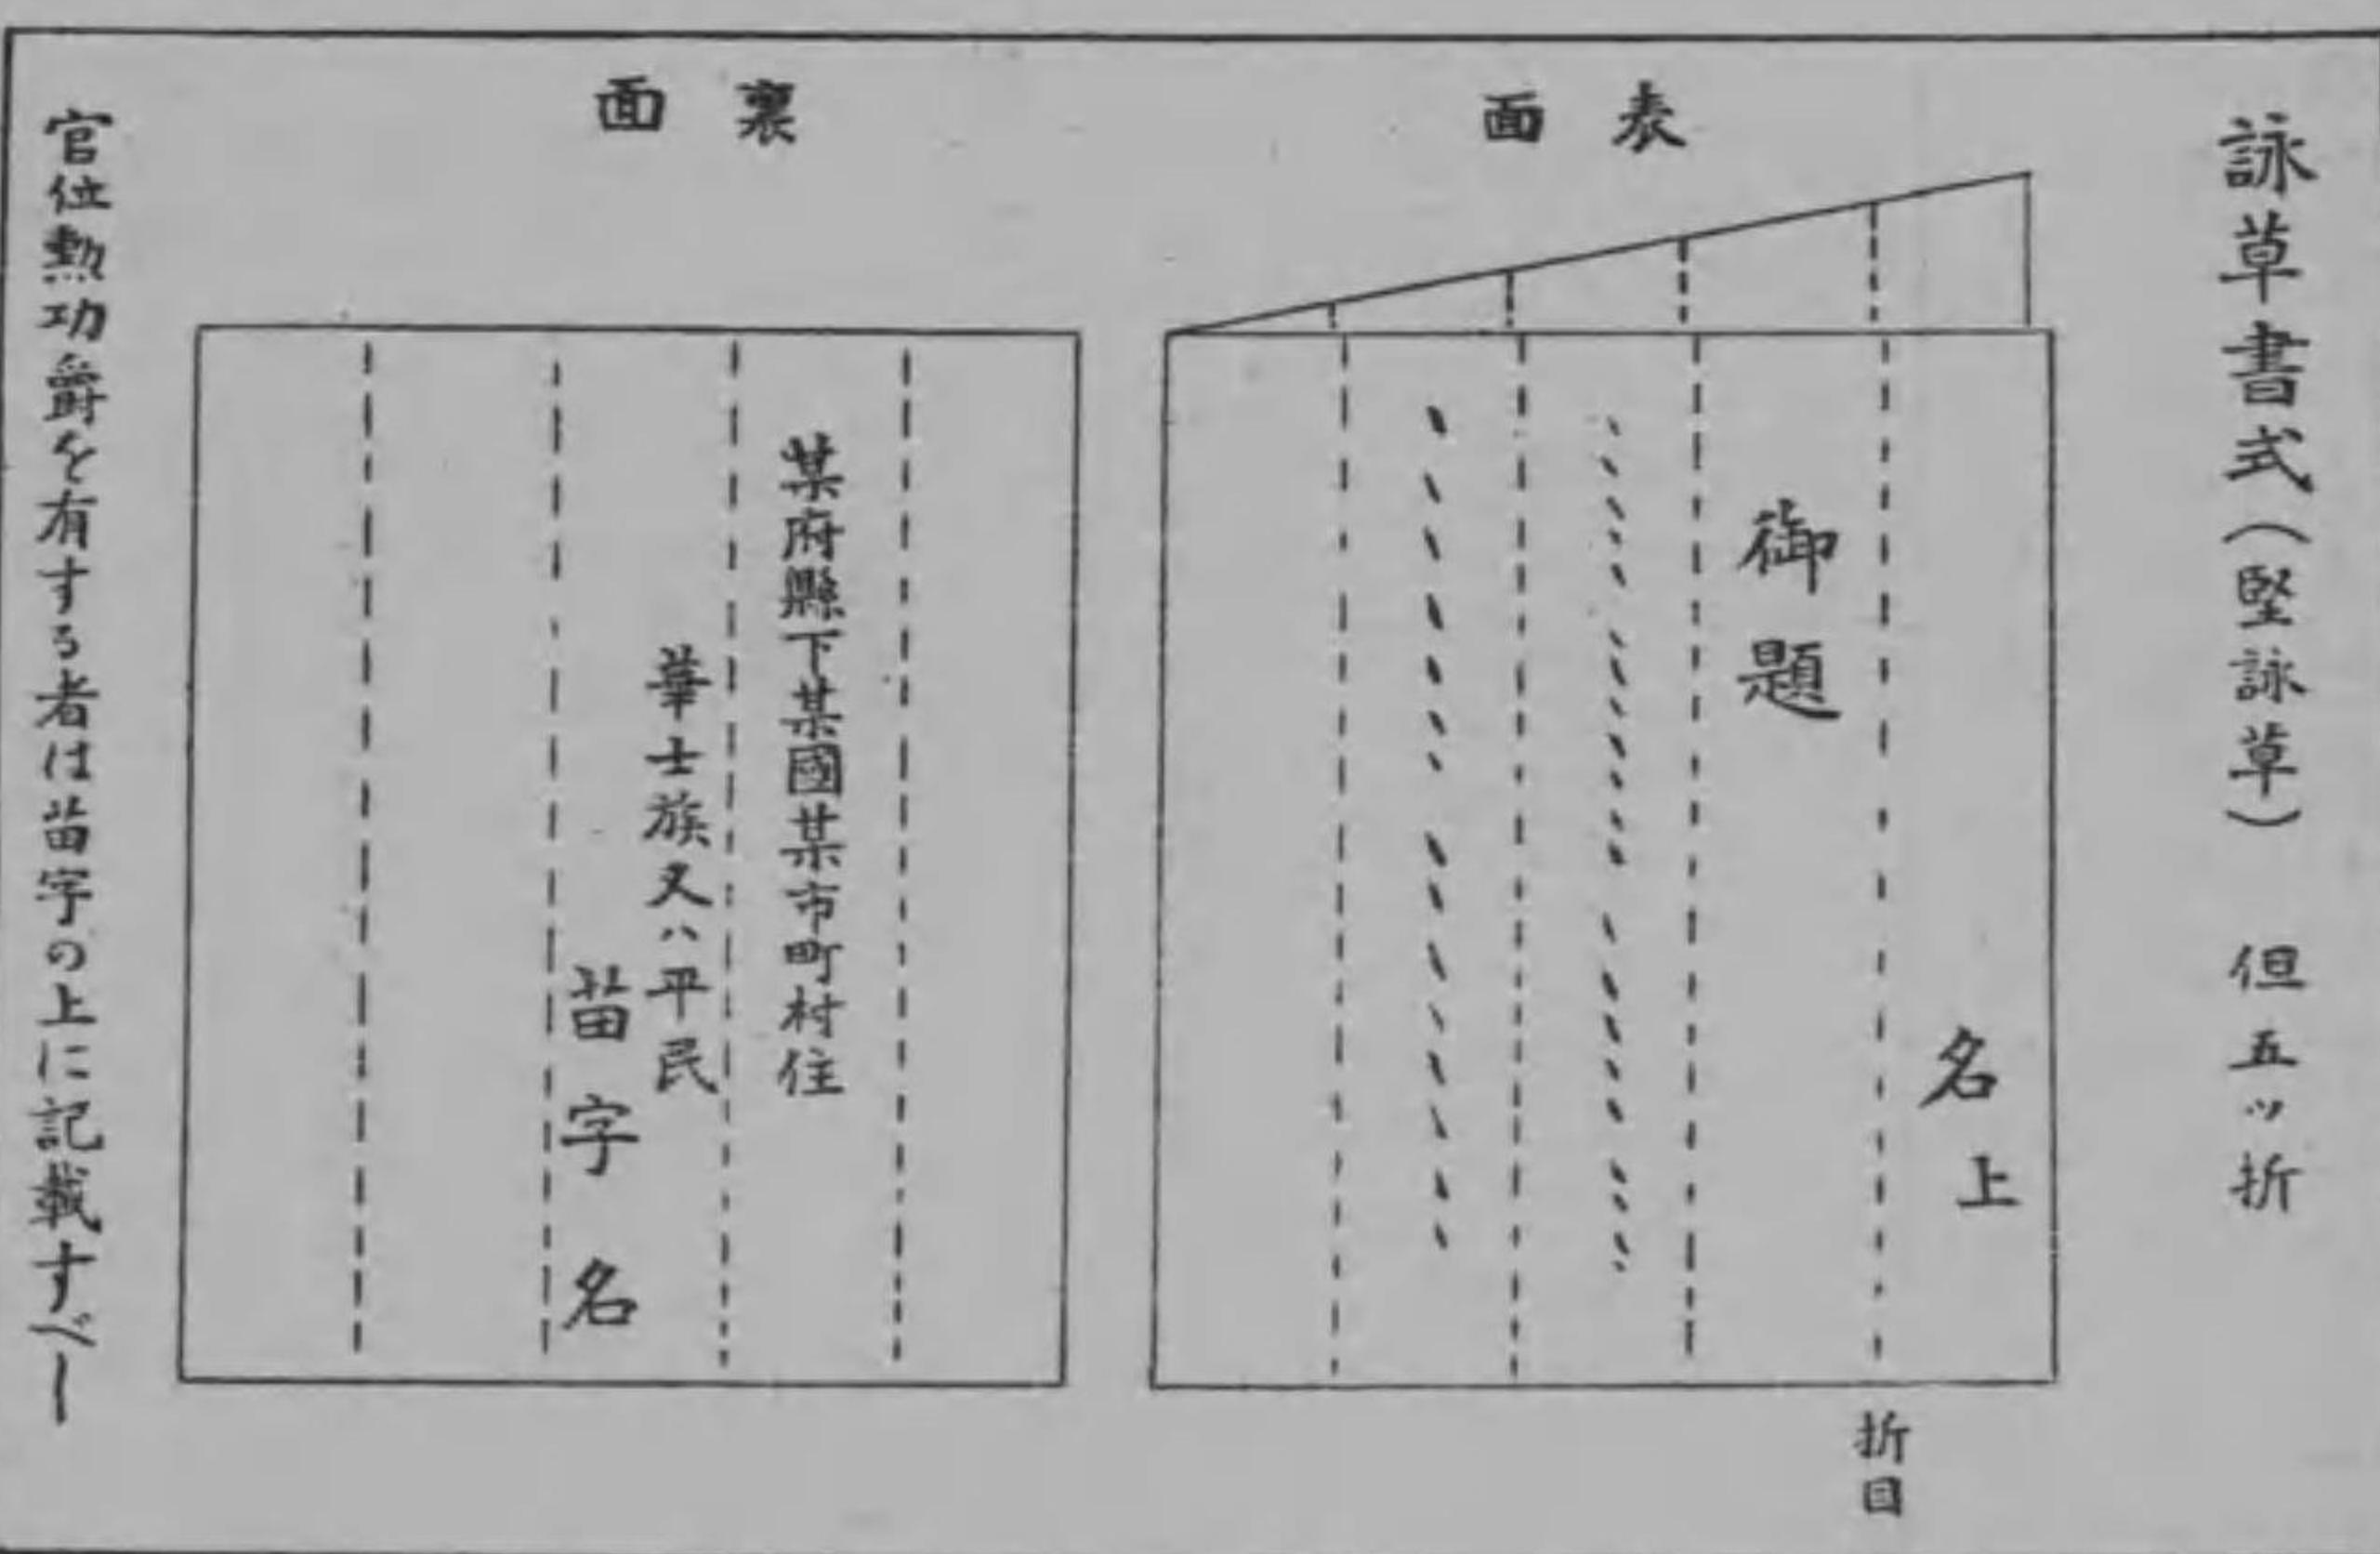 詠草書式(堅詠草) 但五ッ折
表面
名上
御題
折目
裏面
某府縣下某國某市町村住
華士族又ハ平民
苗字名
官位勲功爵を有する者は苗字の上に記載すべし